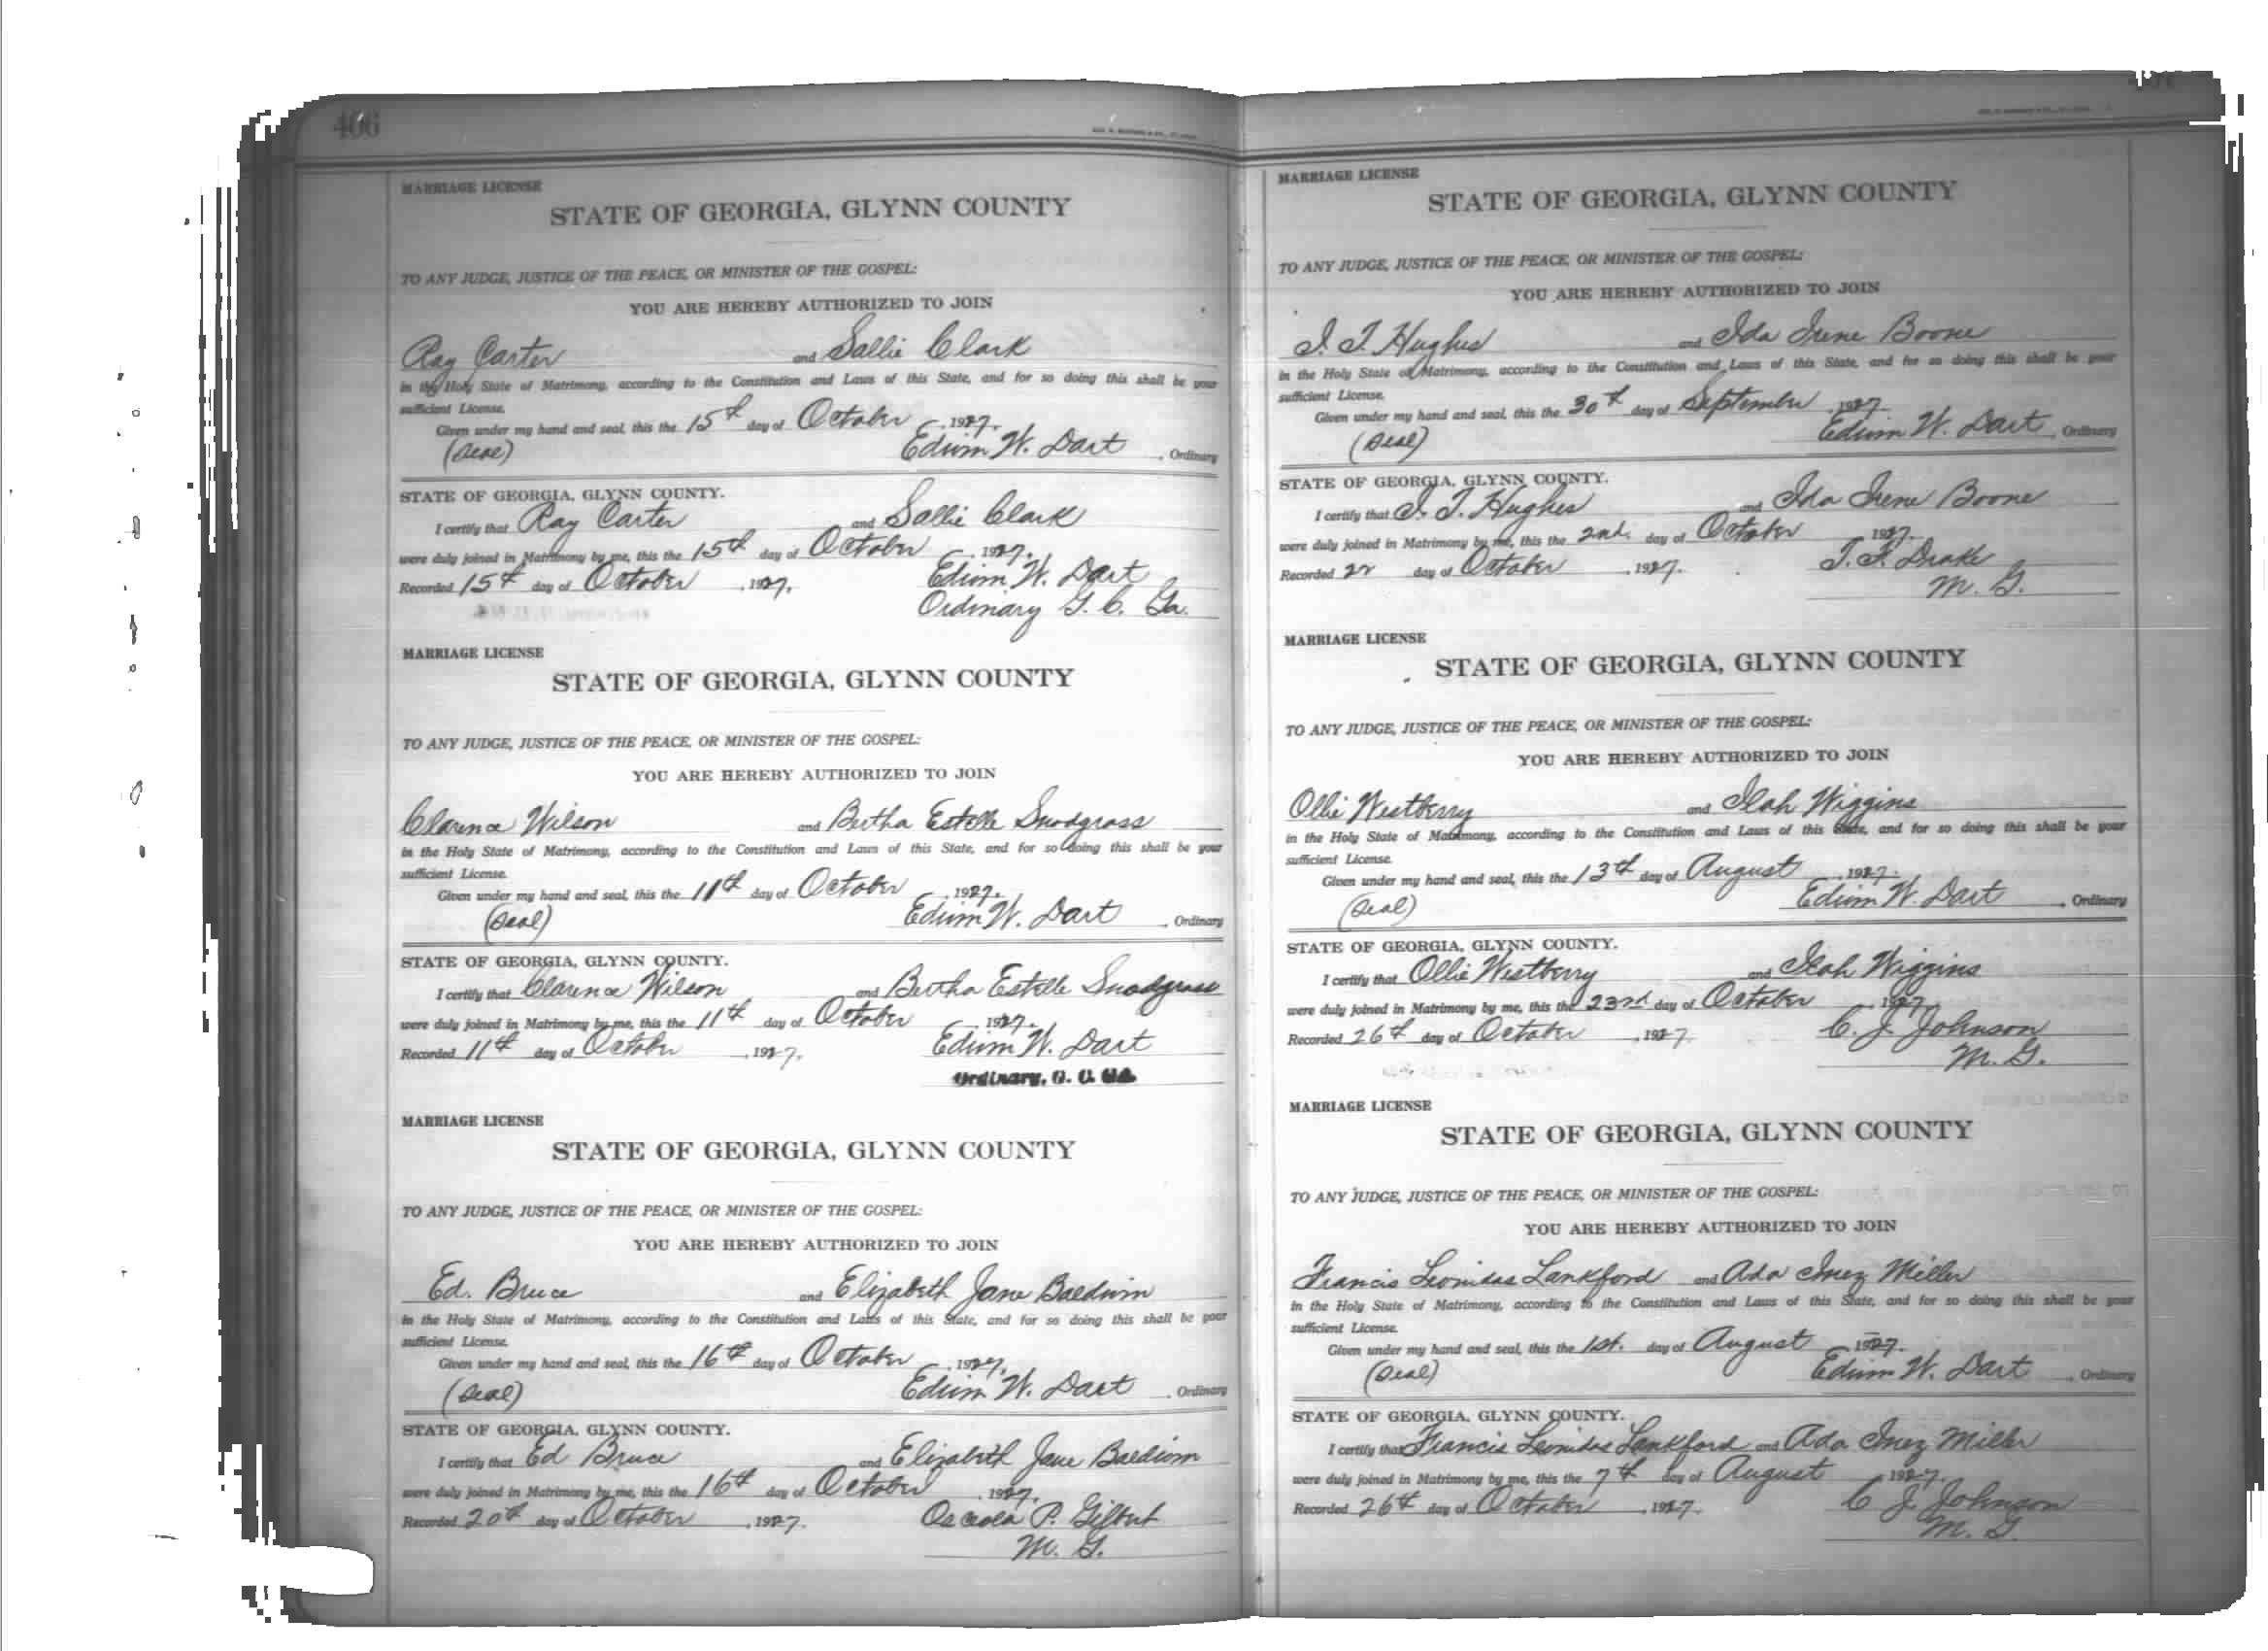 406
MARRIAGE LICENSE
STATE OF GEORGIA, GLYNN COUNTY
TO ANY JUDGE, JUSTICE OF THE PEACE, OR MINISTER OF THE GOSPEL:
YOU ARE HEREBY AUTHORIZED TO JOIN
Ray Carter and Sallie Clark
in the Holy State of Matrimony, according to the Constitution and Laws of this State, and for so doing this shall be your
sufficient License.
Given under my hand and seal, this the 15th day of October, 1927.
(Seal) Edwin W. Dart, Ordinary
STATE OF GEORGIA, GLYNN COUNTY.
I certify that Ray Carter and Sallie Clark
were duly joined in Matrimony by me, this the 15th day of October, 1927.
Recorded 15th day of October, 1927. Edwin W. Dart
Ordinary G. C. Ga.
MARRIAGE LICENSE
STATE OF GEORGIA, GLYNN COUNTY
TO ANY JUDGE, JUSTICE OF THE PEACE, OR MINISTER OF THE GOSPEL:
YOU ARE HEREBY AUTHORIZED TO JOIN
Clarence Wilson and Bertha Estelle Snodgrass
in the Holy State of Matrimony, according to the Constitution and Laws of this State, and for so doing this shall be your
sufficient License.
Given under my hand and seal, this the 11th day of October, 1927.
(Seal) Edwin W. Dart, Ordinary
STATE OF GEORGIA, GLYNN COUNTY.
I certify that Clarence Wilson and Bertha Estelle Snodgrass
were duly joined in Matrimony by me, this the 11th day of October, 1927.
Recorded 11th day of October, 1927. Edwin W. Dart
Ordinary, G. C. Ga.
MARRIAGE LICENSE
STATE OF GEORGIA, GLYNN COUNTY
TO ANY JUDGE, JUSTICE OF THE PEACE, OR MINISTER OF THE GOSPEL:
YOU ARE HEREBY AUTHORIZED TO JOIN
Ed. Bruce and Elizabeth Jane Baldwin
in the Holy State of Matrimony, according to the Constitution and Laws of this State, and for so doing this shall be your
sufficient License.
Given under my hand and seal, this the 16th day of October, 1927.
(Seal) Edwin W. Dart, Ordinary
STATE OF GEORGIA, GLYNN COUNTY.
I certify that Ed Bruce and Elizabeth Jane Baldwin
were duly joined in Matrimony by me, this the 16th day of October, 1927.
Recorded 20th day of October, 1927. Osceola P. Gilbert
M. G.
MARRIAGE LICENSE
STATE OF GEORGIA, GLYNN COUNTY
TO ANY JUDGE, JUSTICE OF THE PEACE, OR MINISTER OF THE GOSPEL:
YOU ARE HEREBY AUTHORIZED TO JOIN
I. T. Hughes and Ida Irene Boone
in the Holy State of Matrimony, according to the Constitution and Laws of this State, and for so doing this shall be your
sufficient License.
Given under my hand and seal, this the 30th day of September, 1927.
(Seal) Edwin W. Dart, Ordinary
STATE OF GEORGIA, GLYNN COUNTY.
I certify that I. T. Hughes and Ida Irene Boone
were duly joined in Matrimony by me, this the 2nd. day of October 1927.
Recorded 22 day of October, 1927. T. F. Drake
M. G.
MARRIAGE LICENSE
STATE OF GEORGIA, GLYNN COUNTY
TO ANY JUDGE, JUSTICE OF THE PEACE, OR MINISTER OF THE GOSPEL:
YOU ARE HEREBY AUTHORIZED TO JOIN
Ollie Westberry and Ilah Wiggins
in the Holy State of Matrimony, according to the Constitution and Laws of this State, and for so doing this shall be your
sufficient License.
Given under my hand and seal, this the 13th day of August, 1927.
(Seal) Edwin W. Dart, Ordinary
STATE OF GEORGIA, GLYNN COUNTY.
I certify that Ollie Westberry and Ilah Wiggins
were duly joined in Matrimony by me, this the 23rd day of October, 1927
Recorded 26th day of October, 1927. C. J. Johnson
M. G.
MARRIAGE LICENSE
STATE OF GEORGIA, GLYNN COUNTY
TO ANY JUDGE, JUSTICE OF THE PEACE, OR MINISTER OF THE GOSPEL:
YOU ARE HEREBY AUTHORIZED TO JOIN
Francis Leonidas Lankford and Ada Inez Miller
in the Holy State of Matrimony, according to the Constitution and Laws of this State, and for so doing this shall be your
sufficient License.
Given under my hand and seal, this the 1st. day of August, 1927.
(Seal) Edwin W. Dart, Ordinary
STATE OF GEORGIA, GLYNN COUNTY.
I certify that Francis Leonidas Lankford and Ada Inez Miller
were duly joined in Matrimony by me, this the 7th day of August, 1927.
Recorded 26th day of October, 1927. C J. Johnson
M. G.